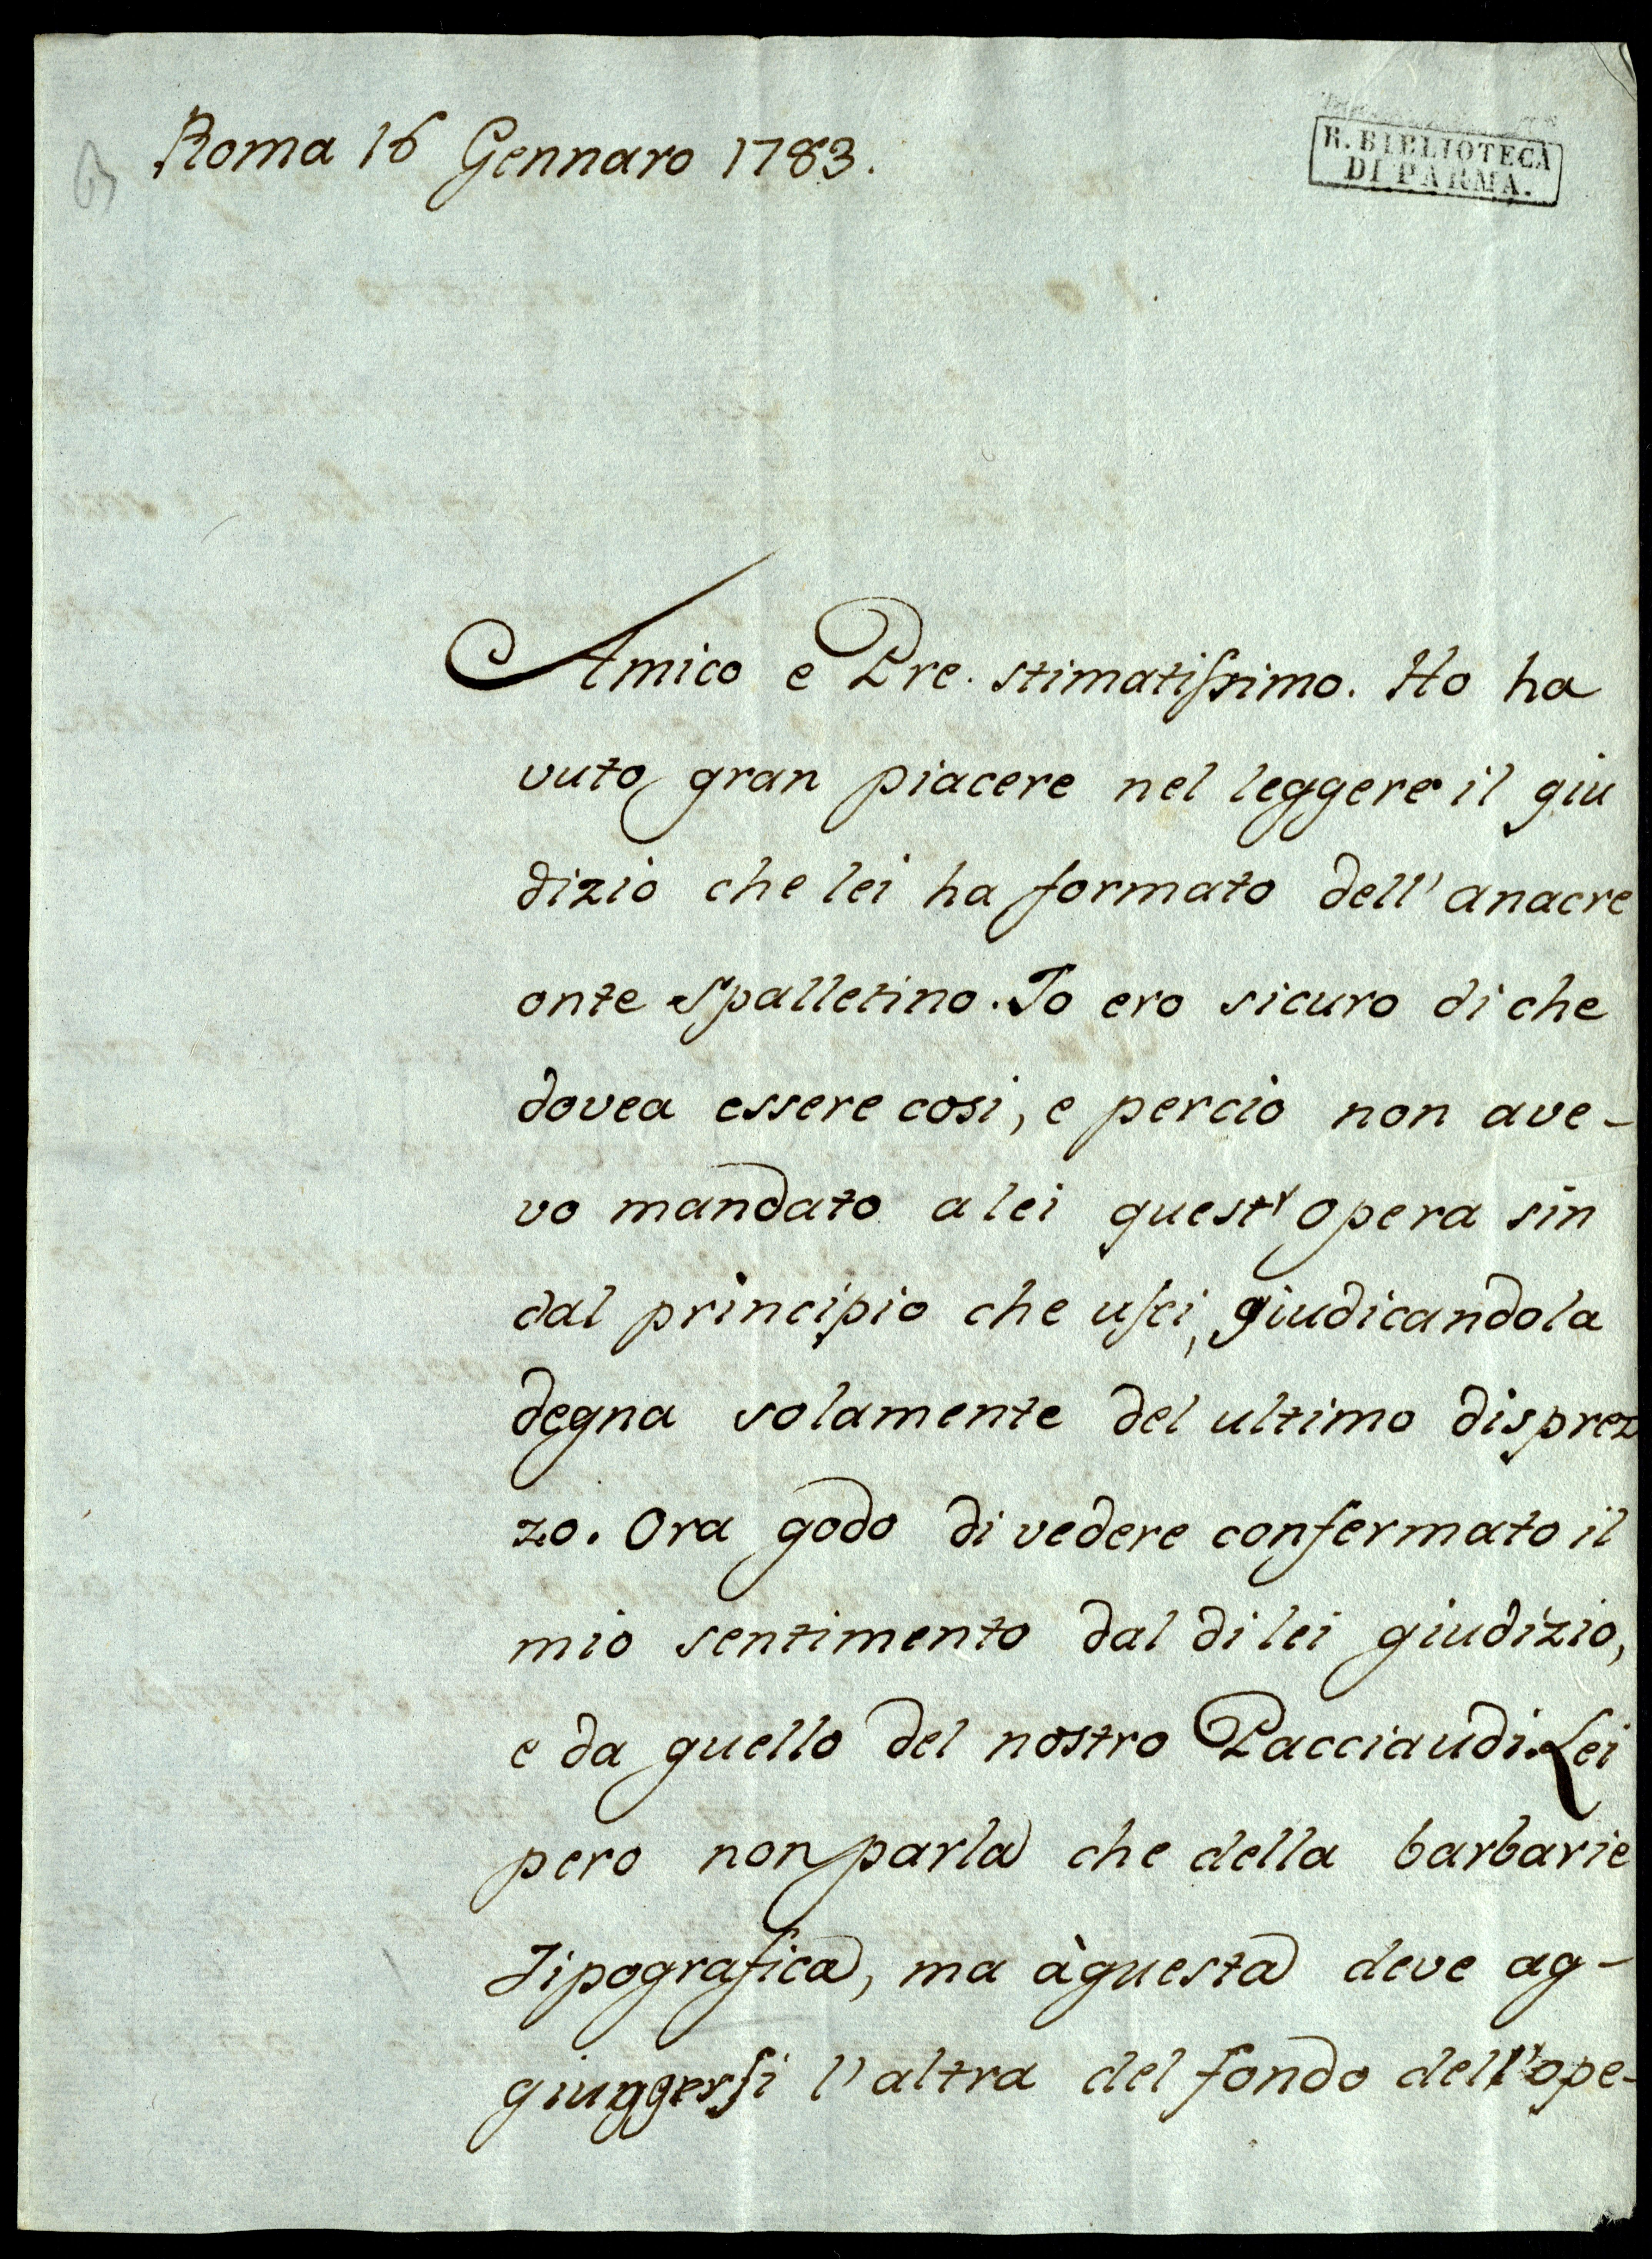 Roma 16 Gennaro 1783.
R. BIBLIOTECA
DI PARMA.
Amico e Pre. stimatiſsimo. Ho ha
vuto gran piacere nel leggere il giu
dizio che lei ha formato dell' anacre
onte Spalletino. Io ero sicuro di che
dovea essere cosi, e perciò non ave-
vo mandato a lei quest' opera sin
dal principio che uſci, giudicandola
degna solamente del ultimo disprez
zo. Ora godo di vedere confermato il
mio sentimento dal di lei giudizio,
e da quello del nostro Pacciaudi. Lei
pero non parla che della barbarie
Tipografica, ma à questa deve ag-
giuggerſi l' altra del fondo dell' ope-